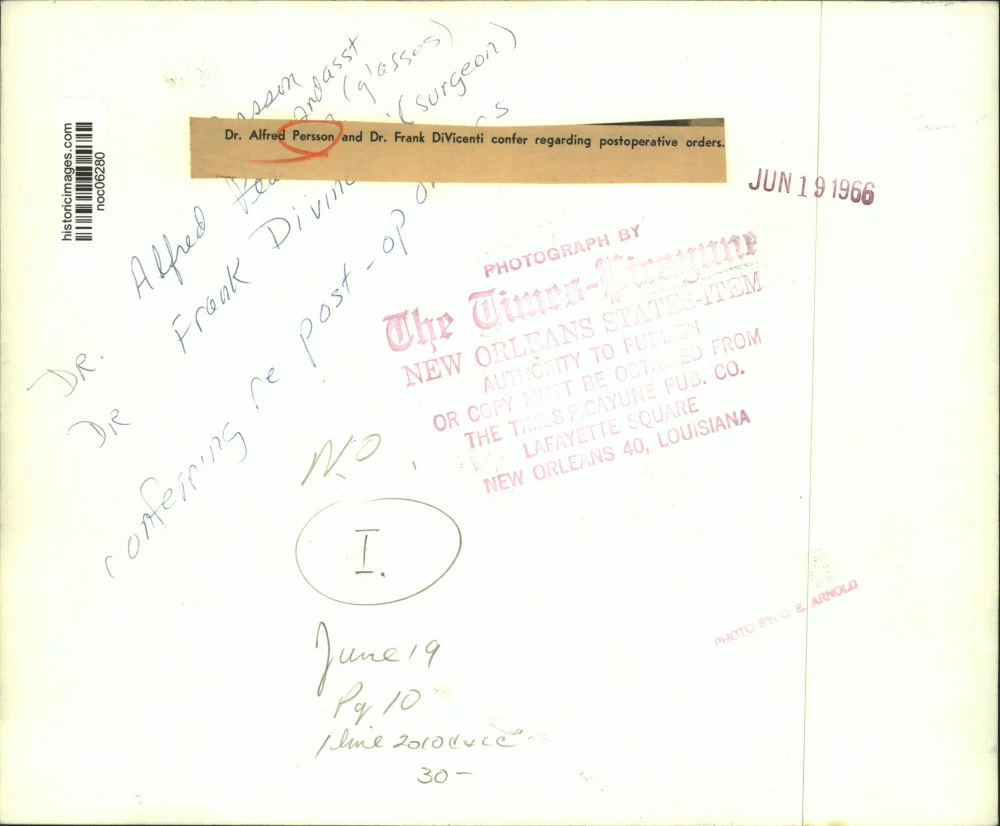 historicimages.com
noc06280
Dr. Alfred Persson and Dr. Frank DiVicenti confer regarding postoperative orders.
JUN 19 1966
DR. Alfred
(glasses)
DR Frank
(surgeon)
conferring re post-op
PHOTOGRAPH BY
The Times-Picayune
NEW ORLEANS STATES-ITEM
AUTHORITY TO PUBLISH
OR COPY MUST BE OBTAINED FROM
THE TIMES PICAYUNE PUB. CO.
LAFAYETTE SQUARE
NEW ORLEANS 40, LOUISIANA
N.O
I.
June 19
Pg 10
1 line
30-
PHOTO BY: G. E. ARNOLD